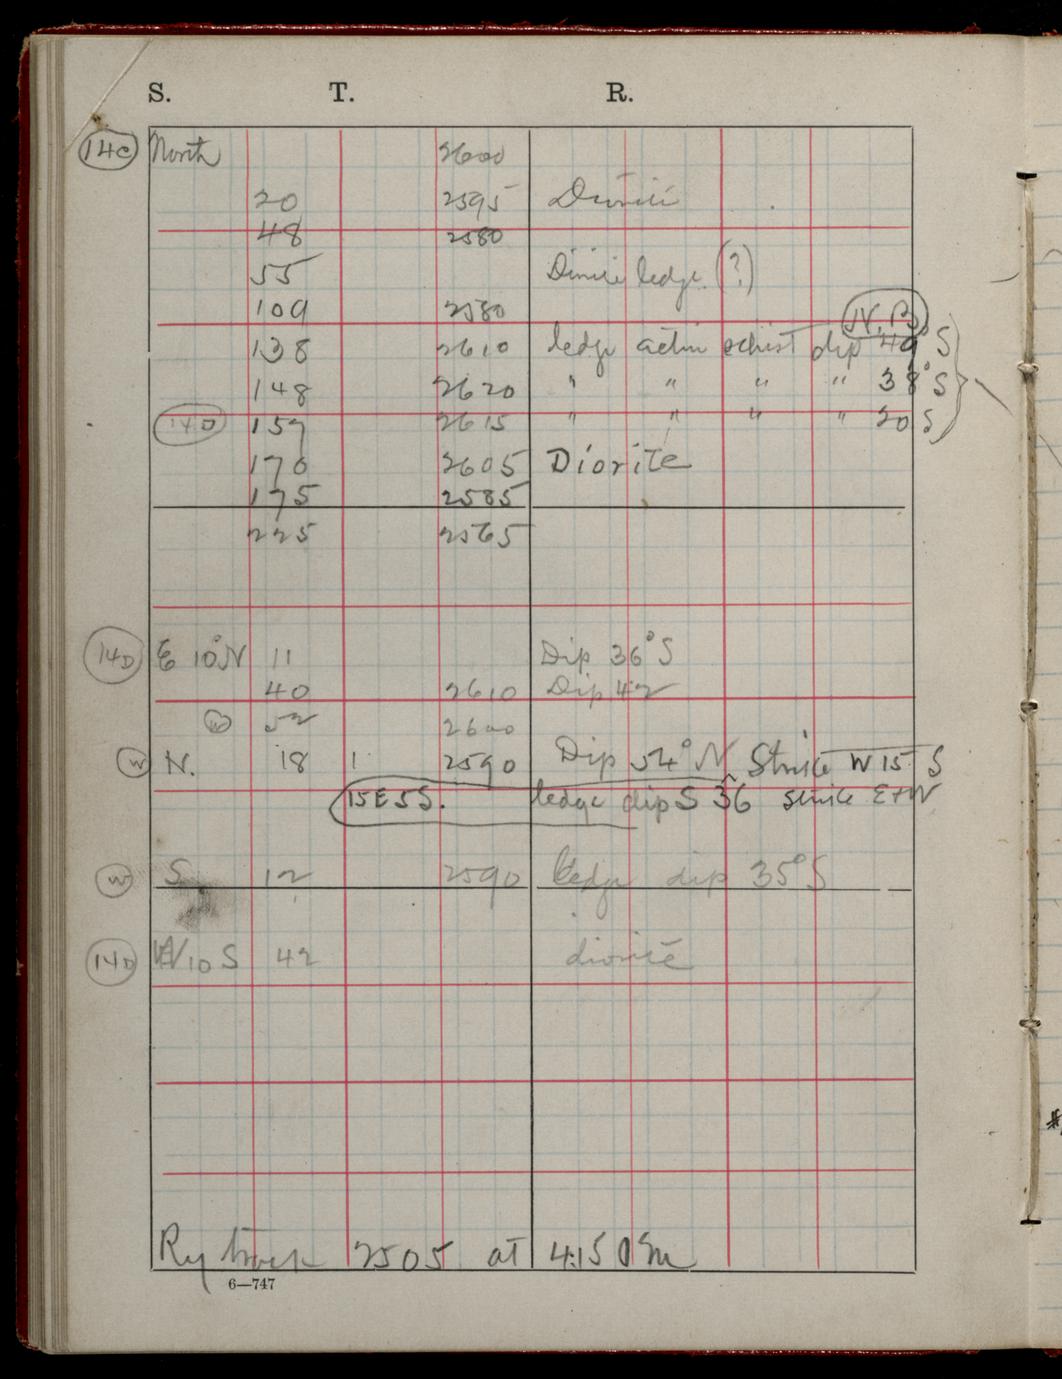 S. T. R.
14C North 2600
20 2595 Diorite
48 2580
55 Diorite ledge (?)
109 2580 N.B.
138 2610 ledge actin schist dip 49° S
148 2620 " " " " 38° S
14D 157 2615 " " " " 20 S
170 2605 Diorite
175 2585
225 2565
14D E 10° N 11 Dip 36° S
40 2610 Dip 42
W 52 2600
W N. 18 1 2590 Dip 54° N Strike W 15 S
15E5S. ledge dip S 36 strike E+W
W S 12 2590 Ledge dip 35° S
14D W 10 S 42 diorite
Ry track 2505 at 4:15 Pm
6—747